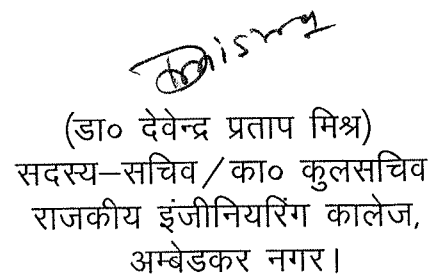 (डा० देवेन्द्र प्रताप मिश्र)
सदस्य–सचिव / का० कुलसचिव
राजकीय इंजीनियरिंग कालेज,
अम्बेडकर नगर।